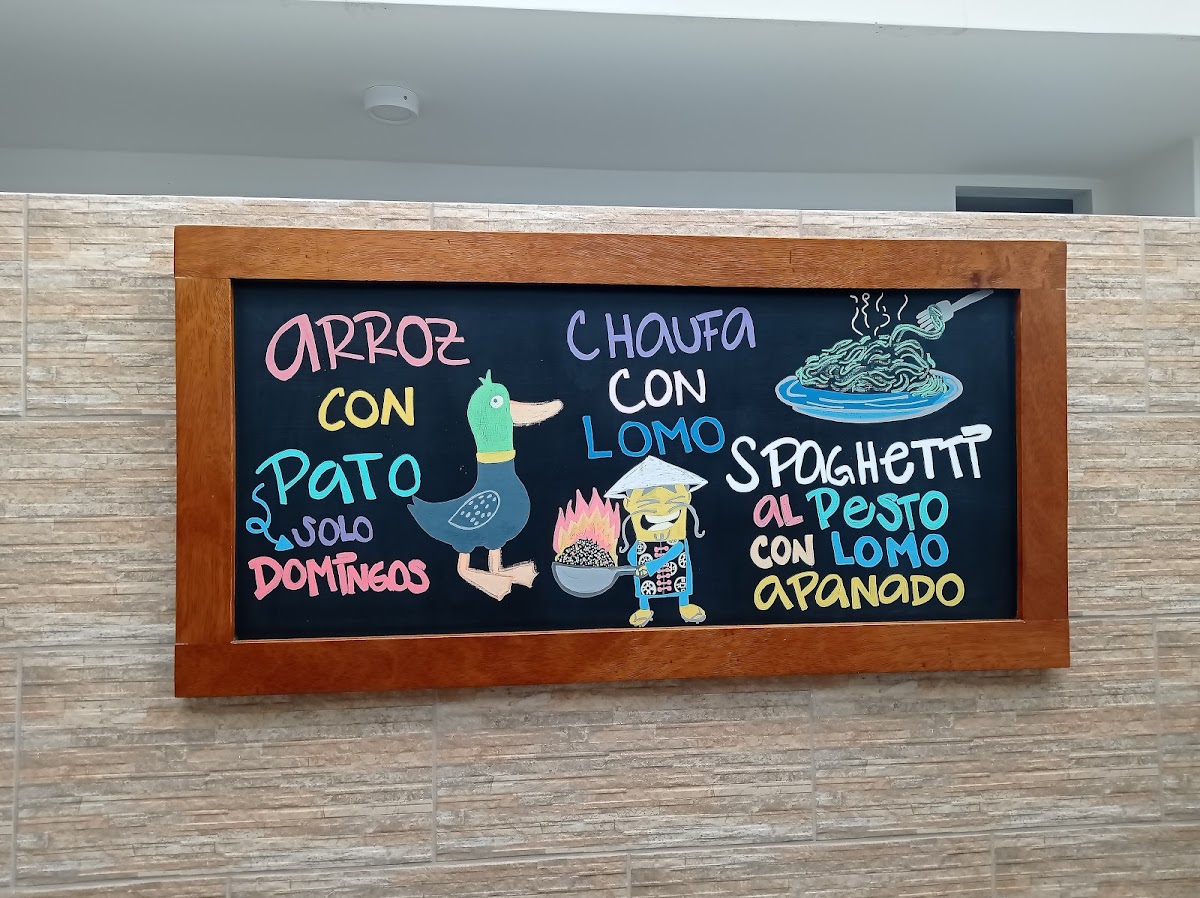 ARROZ
CON
PATO
SOLO
DOMINGOS
CHAUFA
CON
LOMO
SPAGHETTI
AL PESTO
CON LOMO
APANADO